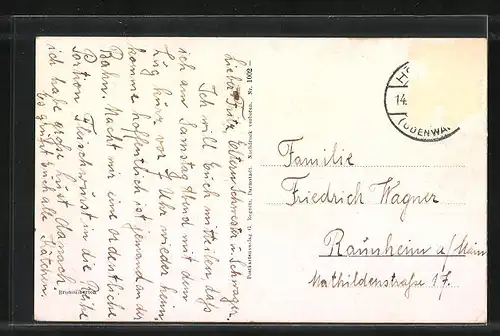 Liebe Fritz, Eltern Schwester u. Schwager.
Ich will Euch mitteilen daß
ich am Samstag Abend mit dem
Zug kurz vor 9 Uhr wieder heim
komme hoffentlich ist jemand an der
Bahn. Macht mir eine ordentliche
Portion Fleischwurst in die Reihe
ich habe große Lust danach
Es grüßt Euch alle Käthchen
Postkartenverlag G. Rognitz, Darmstadt. Nachdruck verboten. Nr. 1002
(ODENWA
14.
Familie
Friedrich Wagner
Raunheim a/Main
Mathildenstraße 17.